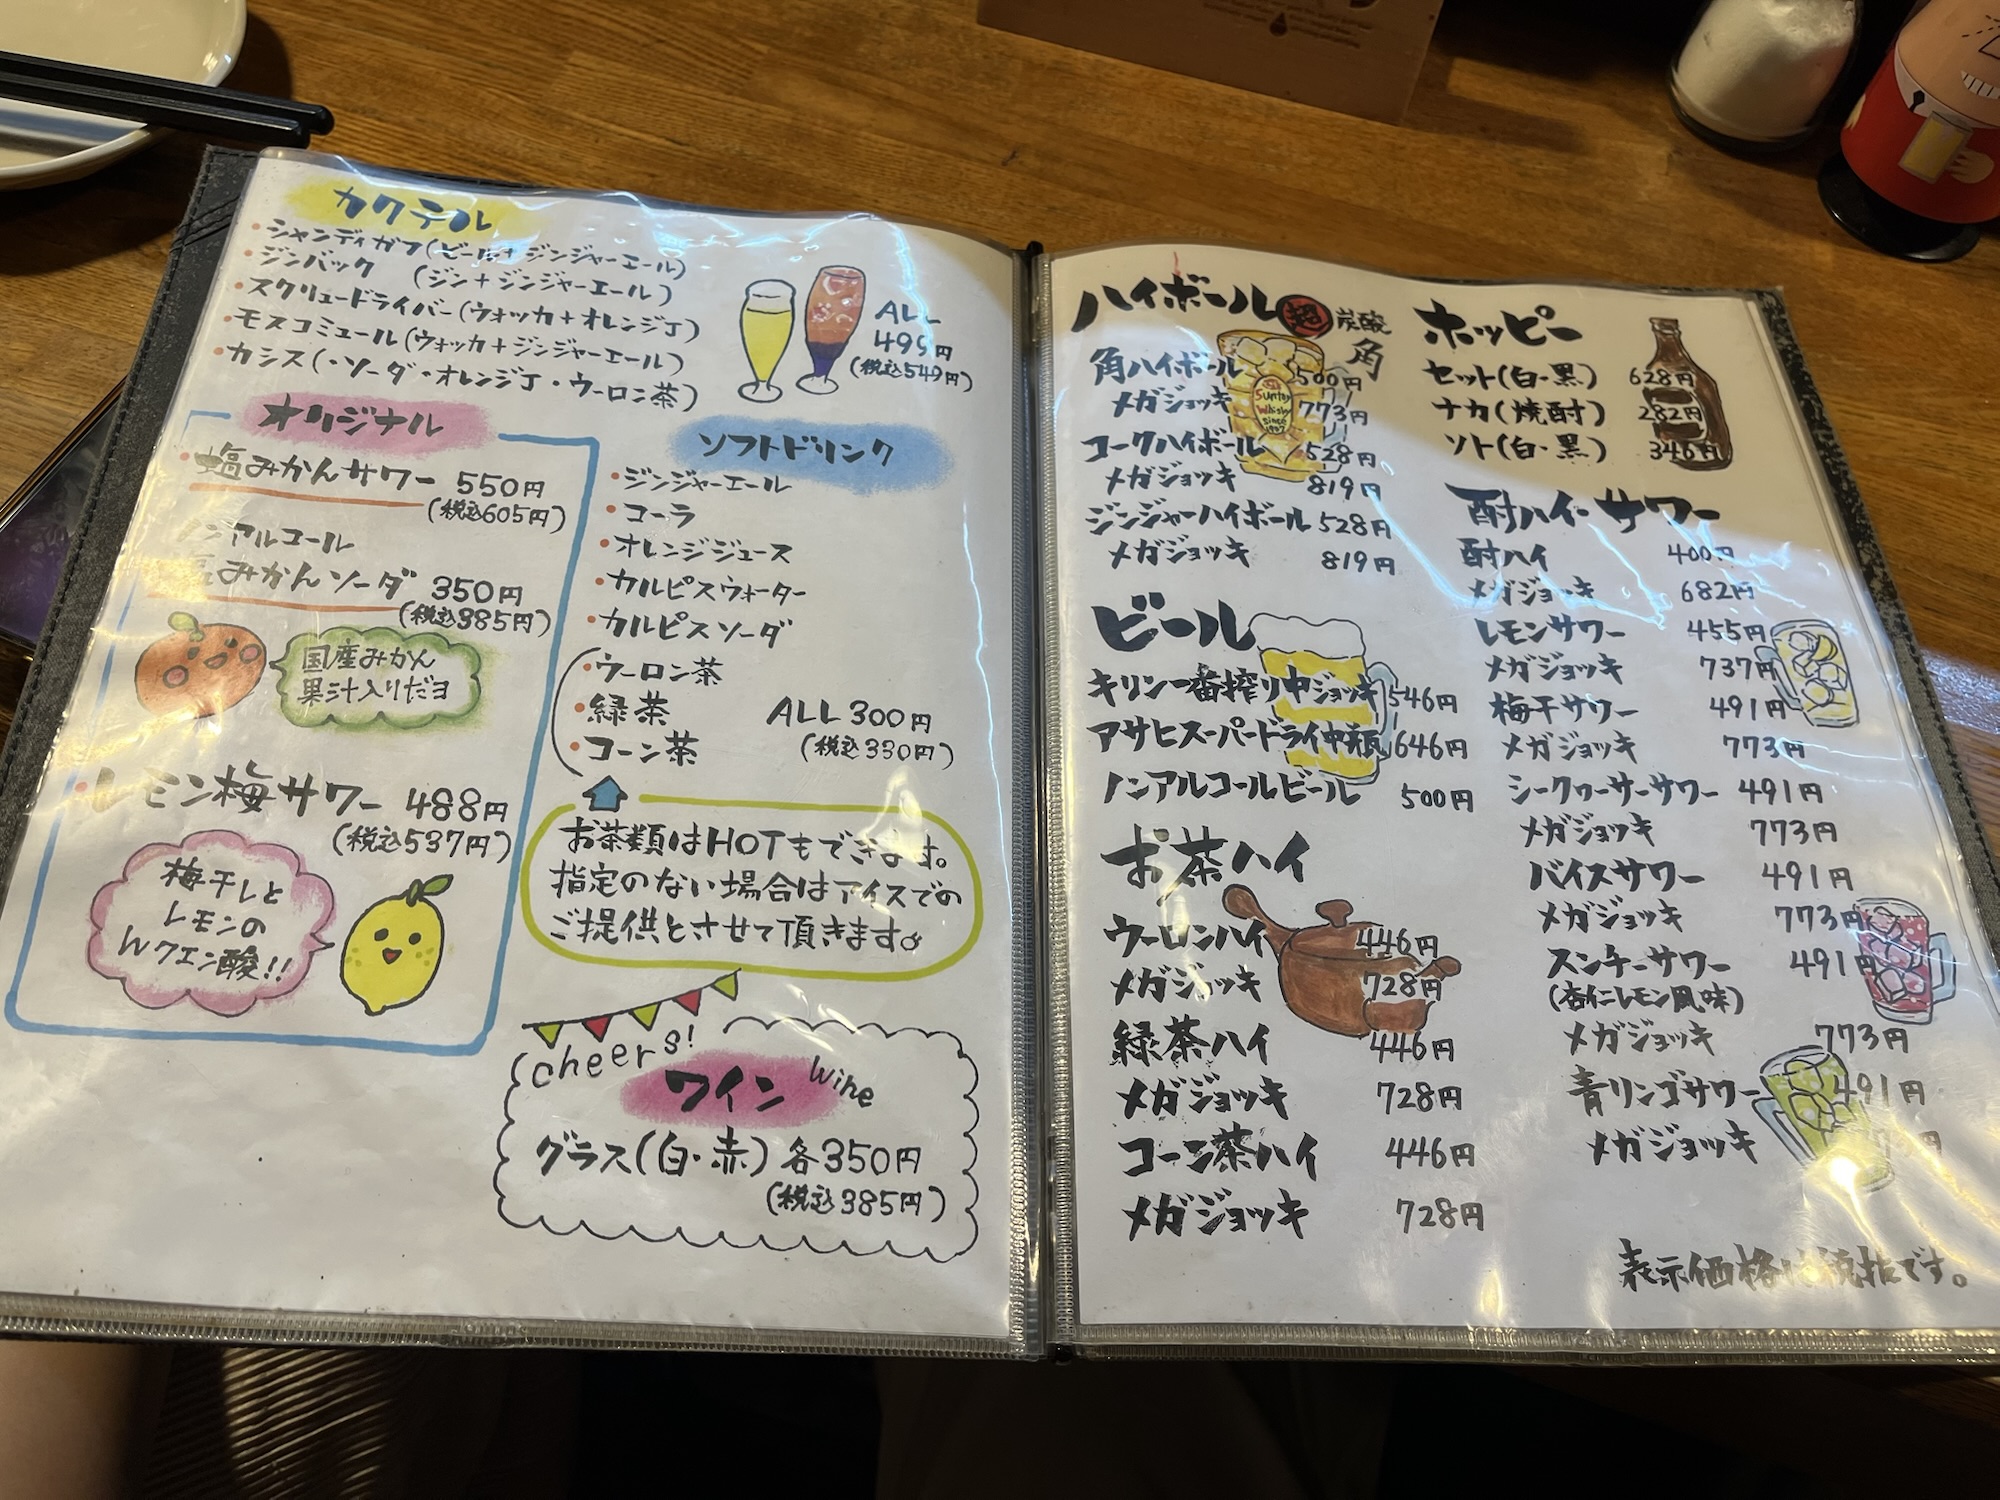 カクテル
・シャンディガフ(ビール+ジンジャーエール)
・ジンバック (ジン+ジンジャーエール)
・スクリュードライバー(ウォッカ+オレンジJ)
・モスコミュール(ウォッカ+ジンジャーエール)
・カシス(・ソーダ・オレンジJ・ウーロン茶)
ALL
499円
(税込549円)
オリジナル
・塩みかんサワー 550円
(税込605円)
ノンアルコール
塩みかんソーダ 350円
(税込385円)
国産みかん
果汁入りだヨ
・レモン梅サワー 488円
(税込537円)
梅干しと
レモンの
Wクエン酸!!
ソフトドリンク
・ジンジャーエール
・コーラ
・オレンジジュース
・カルピスウォーター
・カルピスソーダ
・ウーロン茶
・緑茶
・コーン茶
ALL 300円
(税込330円)
お茶類はHOTもできます。
指定のない場合はアイスでの
ご提供とさせて頂きます
cheers!
ワイン
wine
グラス(白・赤) 各350円
(税込385円)
ハイボール 超 炭酸
角
角ハイボール 500円
メガジョッキ 773円
コークハイボール 528円
メガジョッキ 819円
ジンジャーハイボール 528円
メガジョッキ 819円
Suntory
Whisky
since
1907
ビール
キリン一番搾り中ジョッキ 546円
アサヒスーパードライ中瓶 646円
ノンアルコールビール 500円
お茶ハイ
ウーロンハイ 446円
メガジョッキ 728円
緑茶ハイ 446円
メガジョッキ 728円
コーン茶ハイ 446円
メガジョッキ 728円
ホッピー
セット(白・黒) 628円
ナカ(焼酎) 282円
ソト(白・黒) 346円
酎ハイ・サワー
酎ハイ 400円
メガジョッキ 682円
レモンサワー 455円
メガジョッキ 737円
梅干サワー 491円
メガジョッキ 773円
シークヮーサーサワー 491円
メガジョッキ 773円
バイスサワー 491円
メガジョッキ 773円
スンチーサワー 491円
(杏仁レモン風味)
メガジョッキ 773円
青リンゴサワー 491円
メガジョッキ
表示価格は税抜です。